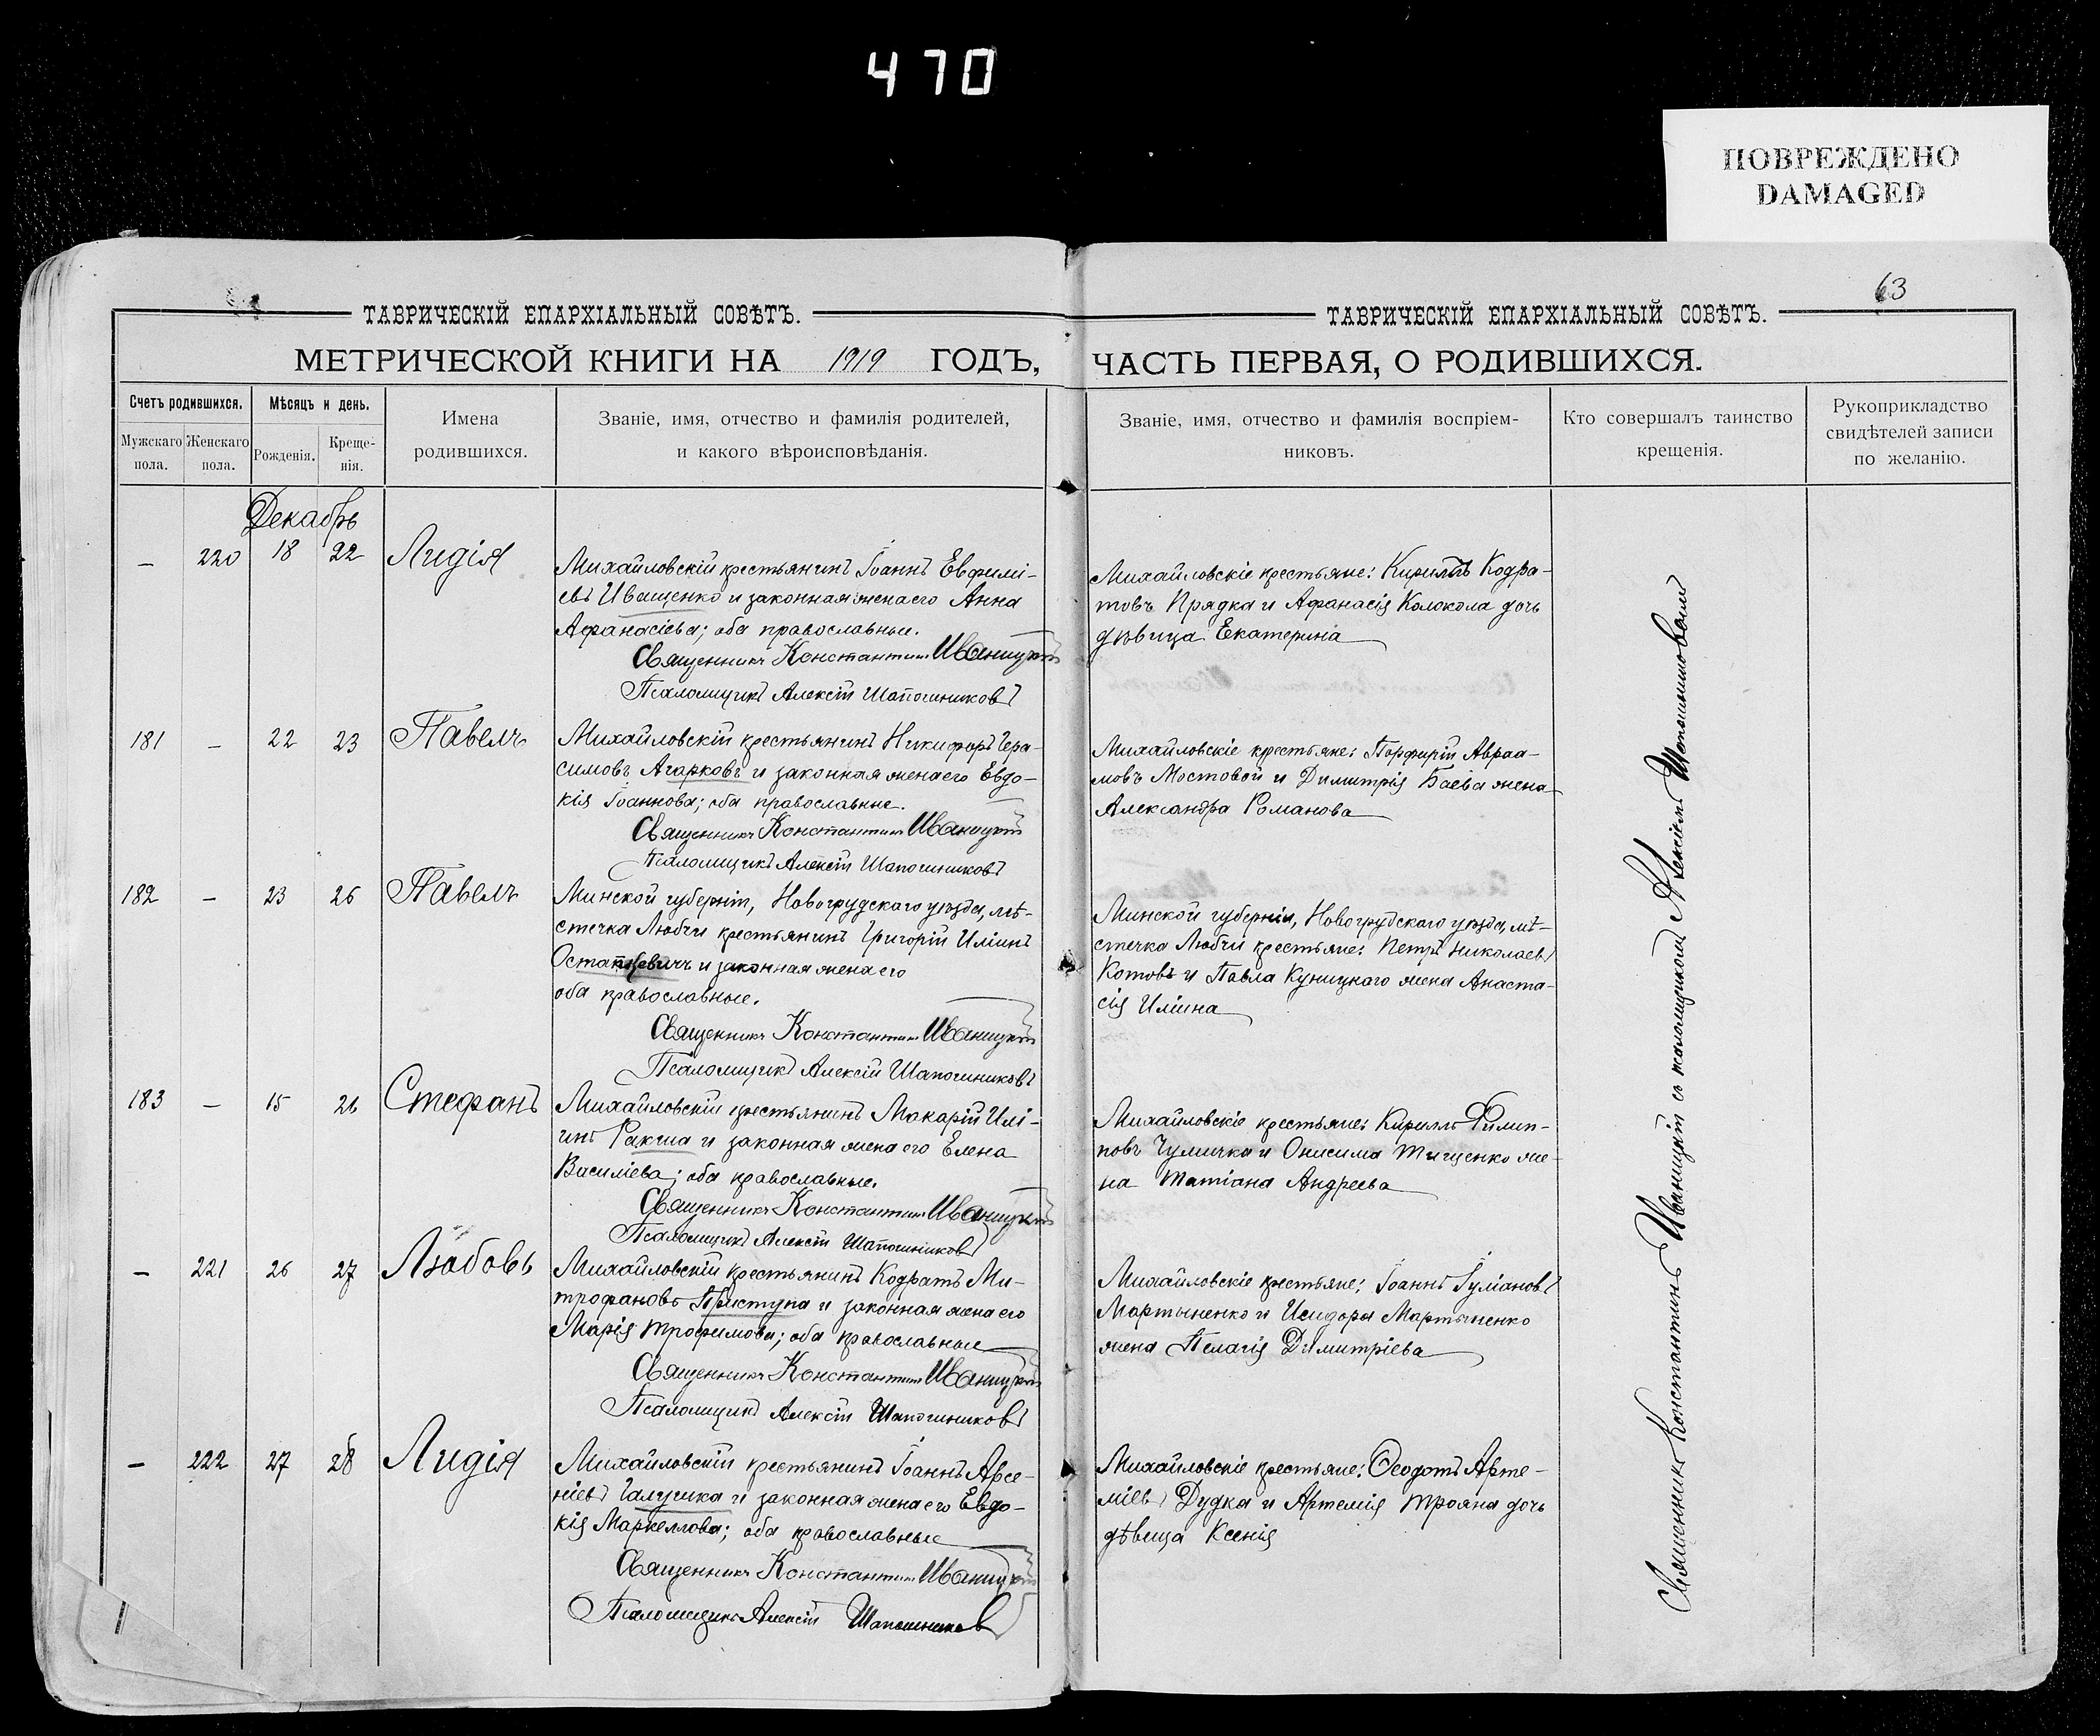 470
ПОВРЕЖДЕНО
DAMAGED
63
ТАВРИЧЕСКІЙ ЕПАРХІАЛЬНЫЙ СОВѢТЪ.
МЕТРИЧЕСКОЙ КНИГИ НА 1919 ГОДЪ,
Счетъ родившихся.
Мѣсяцъ и день.
Мужскаго пола.
Женскаго пола.
Рожденія.
Креще-
нія.
Имена
родившихся.
Званіе, имя, отчество и фамилія родителей,
и какого вѣроисповѣданія.
Декабрь
— 220 18 22 Лидія
Михайловскій крестьянинъ Іоаннъ Евфимі-
евъ Иващенко и законная жена его Анна
Афанасіева; оба православные.
Священникъ Константинъ Иваницкій
Псаломщикъ Алексій Шапошниковъ
181 — 22 23 Павелъ
Михайловскій крестьянинъ Никифоръ Гера-
симовъ Агарковъ и законная жена его Евдо-
кія Іоаннова; оба православные.
Священникъ Константинъ Иваницкій
Псаломщикъ Алексій Шапошниковъ
182 — 23 26 Павелъ
Минской губерніи, Новогрудскаго уѣзда, мѣ-
стечка Любчи крестьянинъ Григорій Иліинъ
Остапкевичъ и законная жена его
оба православные.
Священникъ Константинъ Иваницкій
Псаломщикъ Алексій Шапошниковъ
183 — 15 26 Стефанъ
Михайловскій крестьянинъ Макарій Илі-
инъ Ракша и законная жена его Елена
Василіева; оба православные.
Священникъ Константинъ Иваницкій
Псаломщикъ Алексій Шапошниковъ
— 221 26 27 Любовь
Михайловскій крестьянинъ Кодратъ Ми-
трофановъ Приступа и законная жена его
Марія Трофимова; оба православные
Священникъ Константинъ Иваницкій
Псаломщикъ Алексій Шапошниковъ
— 222 27 28 Лидія
Михайловскій крестьянинъ Іоаннъ Арсе-
ніевъ Галушка и законная жена его Евдо-
кія Маркеллова; оба православные
Священникъ Константинъ Иваницкій
Псаломщикъ Алексій Шапошниковъ
ТАВРИЧЕСКІЙ ЕПАРХІАЛЬНЫЙ СОВѢТЪ.
ЧАСТЬ ПЕРВАЯ, О РОДИВШИХСЯ.
Званіе, имя, отчество и фамилія воспріем-
никовъ.
Кто совершалъ таинство
крещенія.
Рукоприкладство
свидѣтелей записи
по желанію.
Михайловскіе крестьяне: Кириллъ Кодра-
товъ Прядка и Афанасія Колокола дочь
дѣвица Екатерина
Михайловскіе крестьяне: Порфирій Авраа-
мовъ Мостовой и Димитрія Баева жена
Александра Романова
Минской губерніи, Новогрудскаго уѣзда, мѣ-
стечка Любчи крестьяне: Петръ Николаевъ
Котовъ и Павла Куницкаго жена Анаста-
сія Иліина
Михайловскіе крестьяне: Кириллъ Филип-
повъ Чумичка и Онисима Тищенко же-
на Татіана Андреева
Михайловскіе крестьяне: Іоаннъ Іуліановъ
Мартыненко и Исидора Мартыненко
жена Пелагія Димитріева
Михайловскіе крестьяне: Ѳеодотъ Арте-
міевъ Дудка и Артемія Трояна дочь
дѣвица Ксенія
Священникъ Константинъ Иваницкій съ псаломщикомъ Алексіемъ Шапошниковымъ